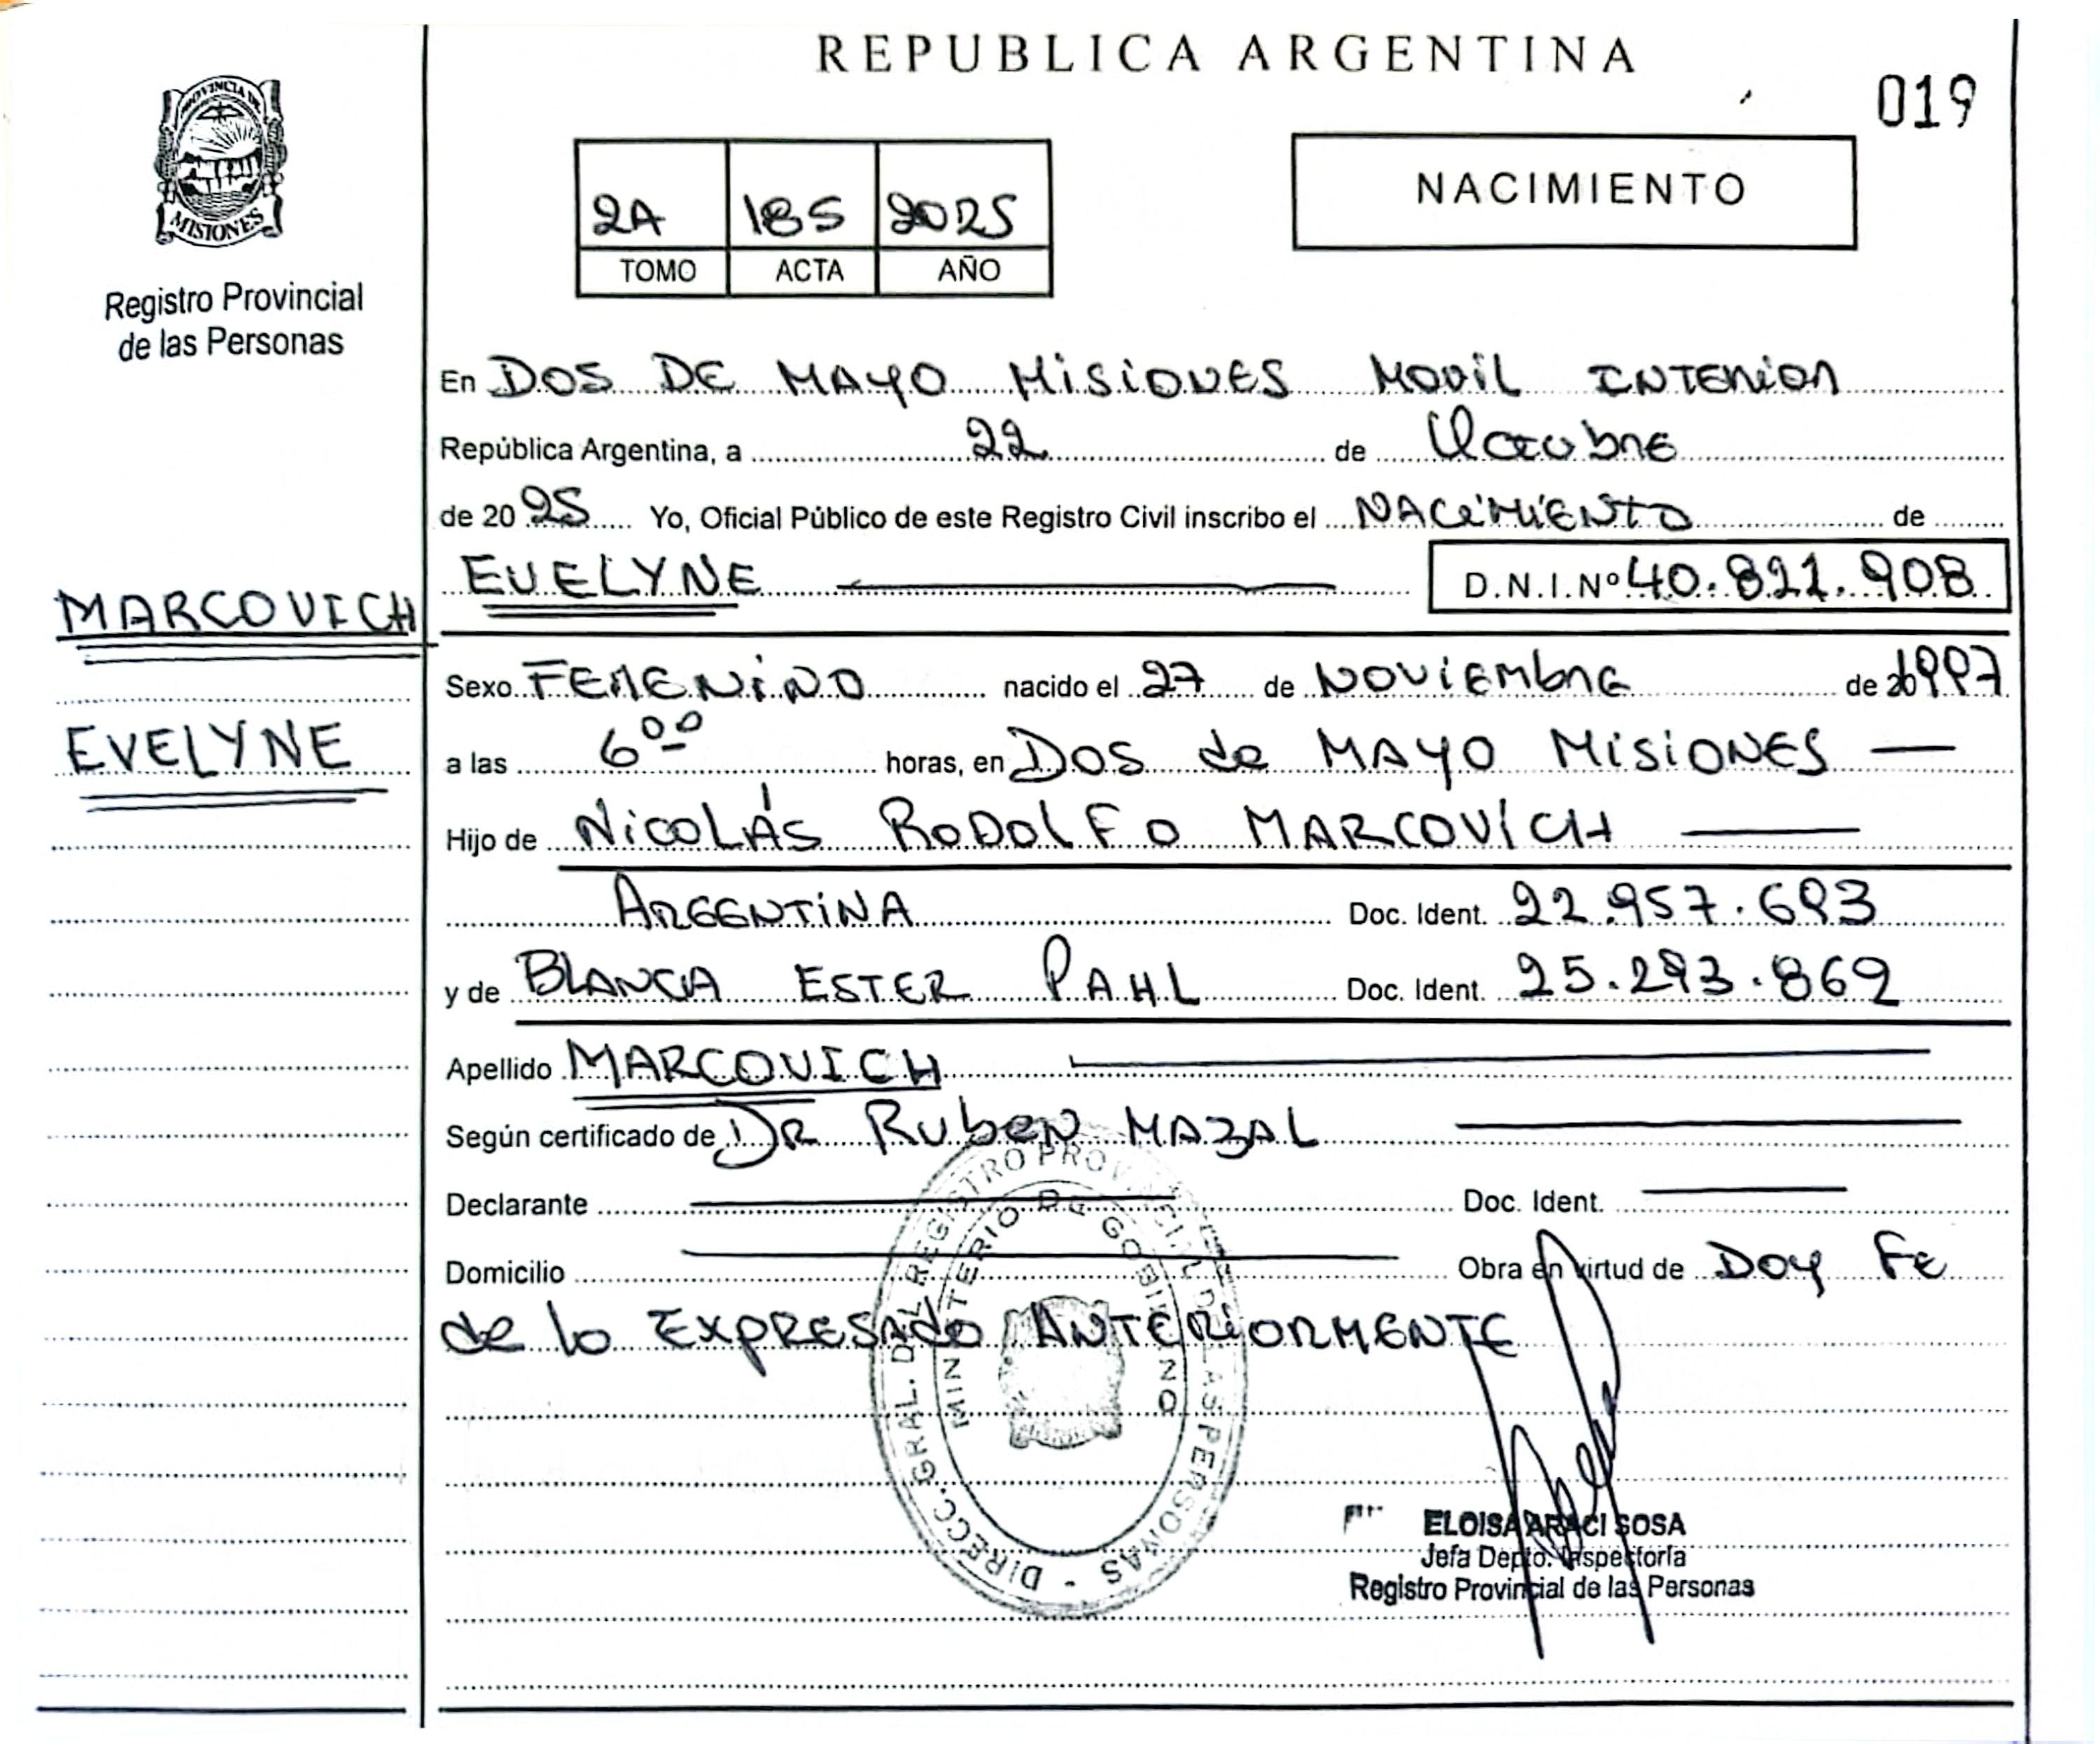 REPUBLICA ARGENTINA
019
PROVINCIA DE
MISIONES
Registro Provincial
de las Personas
2A 185 2025
TOMO ACTA AÑO
NACIMIENTO
En DOS DE MAYO MISIONES MOVIL INTERIOR
República Argentina, a 22 de Octubre
de 2025 Yo, Oficial Público de este Registro Civil inscribo el NACIMIENTO de
EVELYNE D.N.I.Nº 40.821.908
MARCOVICH
Sexo FEMENINO nacido el 27 de NOVIEMbRE de 1997
EVELYNE
a las 6 00 horas, en DOS de MAYO MISIONES
Hijo de NICOLÁS RODOLFO MARCOVICH
ARGENTINA Doc. Ident. 22.957.693
y de BLANCA ESTER PAHL Doc. Ident. 25.293.869
Apellido MARCOVICH
Según certificado de DR RUbEN MAZAL
Declarante Doc. Ident.
Domicilio Obra en virtud de DOY FE
de lo EXPRESADO ANTERIORMENTE
DIRECC. GRAL. DEL REGISTRO PROVINCIAL DE LAS PERSONAS -
MINISTERIO DE GOBIERNO
ELOISA ARACI SOSA
Jefa Depto. Inspectoría
Registro Provincial de las Personas